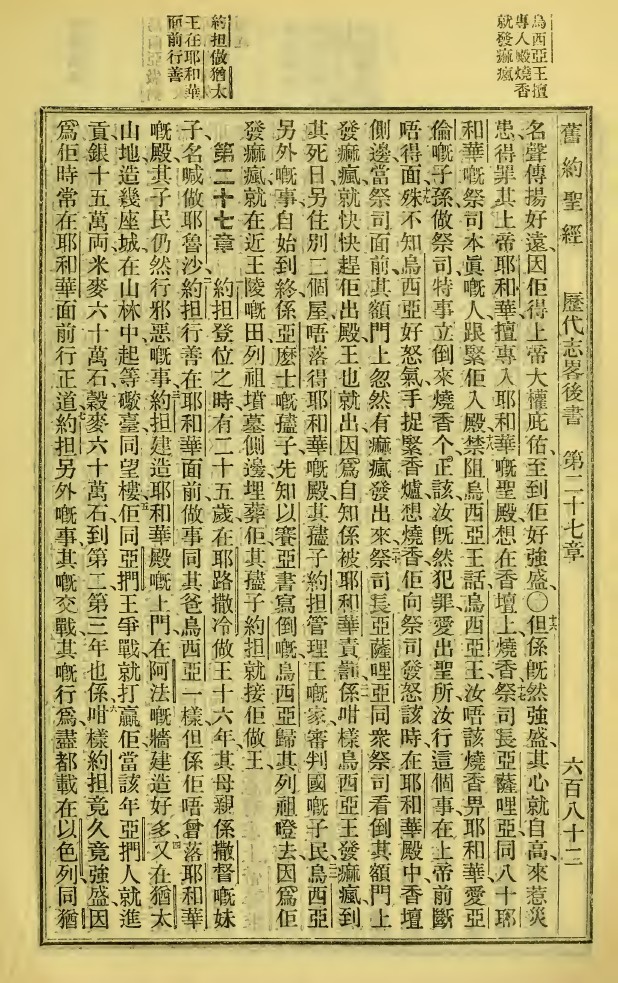 烏西亞王擅
專入殿燒香
就發痲瘋
約担做猶太
王在耶和華
面前行善
舊約聖經 歷代志畧後書 第二十七章 六百八十二
名聲傳揚好遠、因佢得上帝大權庇佑、至到佢好強盛、〇十六但係旣然強盛、其心就自高來惹災
患、得罪其上帝耶和華、擅專入耶和華嘅聖殿、想在香壇上燒香、十七祭司長亞薩哩亞同八十耶
和華嘅祭司、本眞嘅人、跟緊佢入殿、禁阻烏西亞王話、烏西亞王、汝唔該燒香畀耶和華、愛亞
倫嘅子孫做祭司、特事立倒來燒香个、正該、汝旣然犯罪、愛出聖所、汝行這個事、在上帝前斷
唔得面殊、十九不知烏西亞好怒氣、手捉緊香爐想燒香、佢向祭司發怒該時、在耶和華殿中香壇
側邊、當祭司面前、其額門上忽然有痲瘋發出來、二十祭司長亞薩哩亞同衆祭司看倒其額門上
發痲瘋、就快快趕佢出殿、王也就出、因爲自知係被耶和華責罰、係咁樣烏西亞王發痲瘋、到
其死日、另住別二個屋、唔落得耶和華嘅殿、其孻子約担管理王嘅家、審判國嘅子民、烏西亞
另外嘅事、自始到終、係亞麽士嘅孻子先知以賽亞書寫倒嘅、烏西亞歸其列祖噔去、因爲佢
發痲瘋、就在近王陵嘅田、列祖墳墓側邊埋葬佢、其孻子約担就接佢做王、
第二十七章 約担登位之時有二十五歲、在耶路撒冷做王十六年、其母親係撒督嘅妹
子、名喊做耶魯沙、約担行善在耶和華面前、做事同其爸烏西亞一樣、但係佢唔曾落耶和華
嘅殿、其子民仍然行邪惡嘅事、三約担建造耶和華殿嘅上門、在阿法嘅牆建造好多、四又在猶太
山地造幾座城、在山林中起等礮臺同望樓、五佢同亞捫王爭戰、就打贏佢、當該年亞捫人就進
貢銀十五萬両、米麥六十萬石、穀麥六十萬石、到第二第三年也係咁樣、約担竟久竟強盛、因
爲佢時常在耶和華面前行正道、約担另外嘅事、其嘅交戰、其嘅行爲、盡都載在以色列同猶